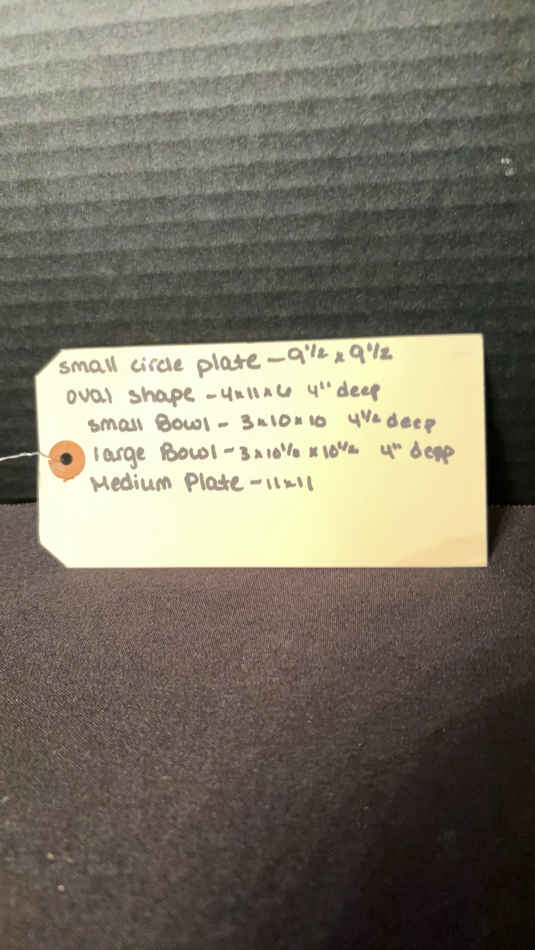 small circle plate - 9 1/2 x 9 1/2
oval shape - 4x11x6 4" deep
small Bowl - 3x10x10 4 1/2 deep
large Bowl - 3x10 1/2 x 10 1/2 4" depp
Medium Plate - 11x11